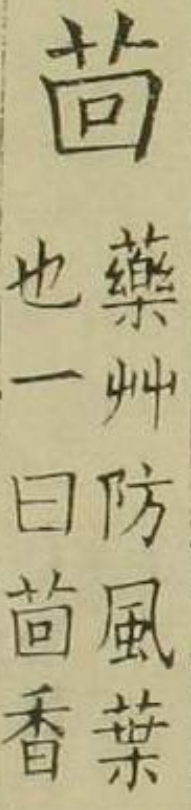 茴
藥艸防風葉
也一曰茴香